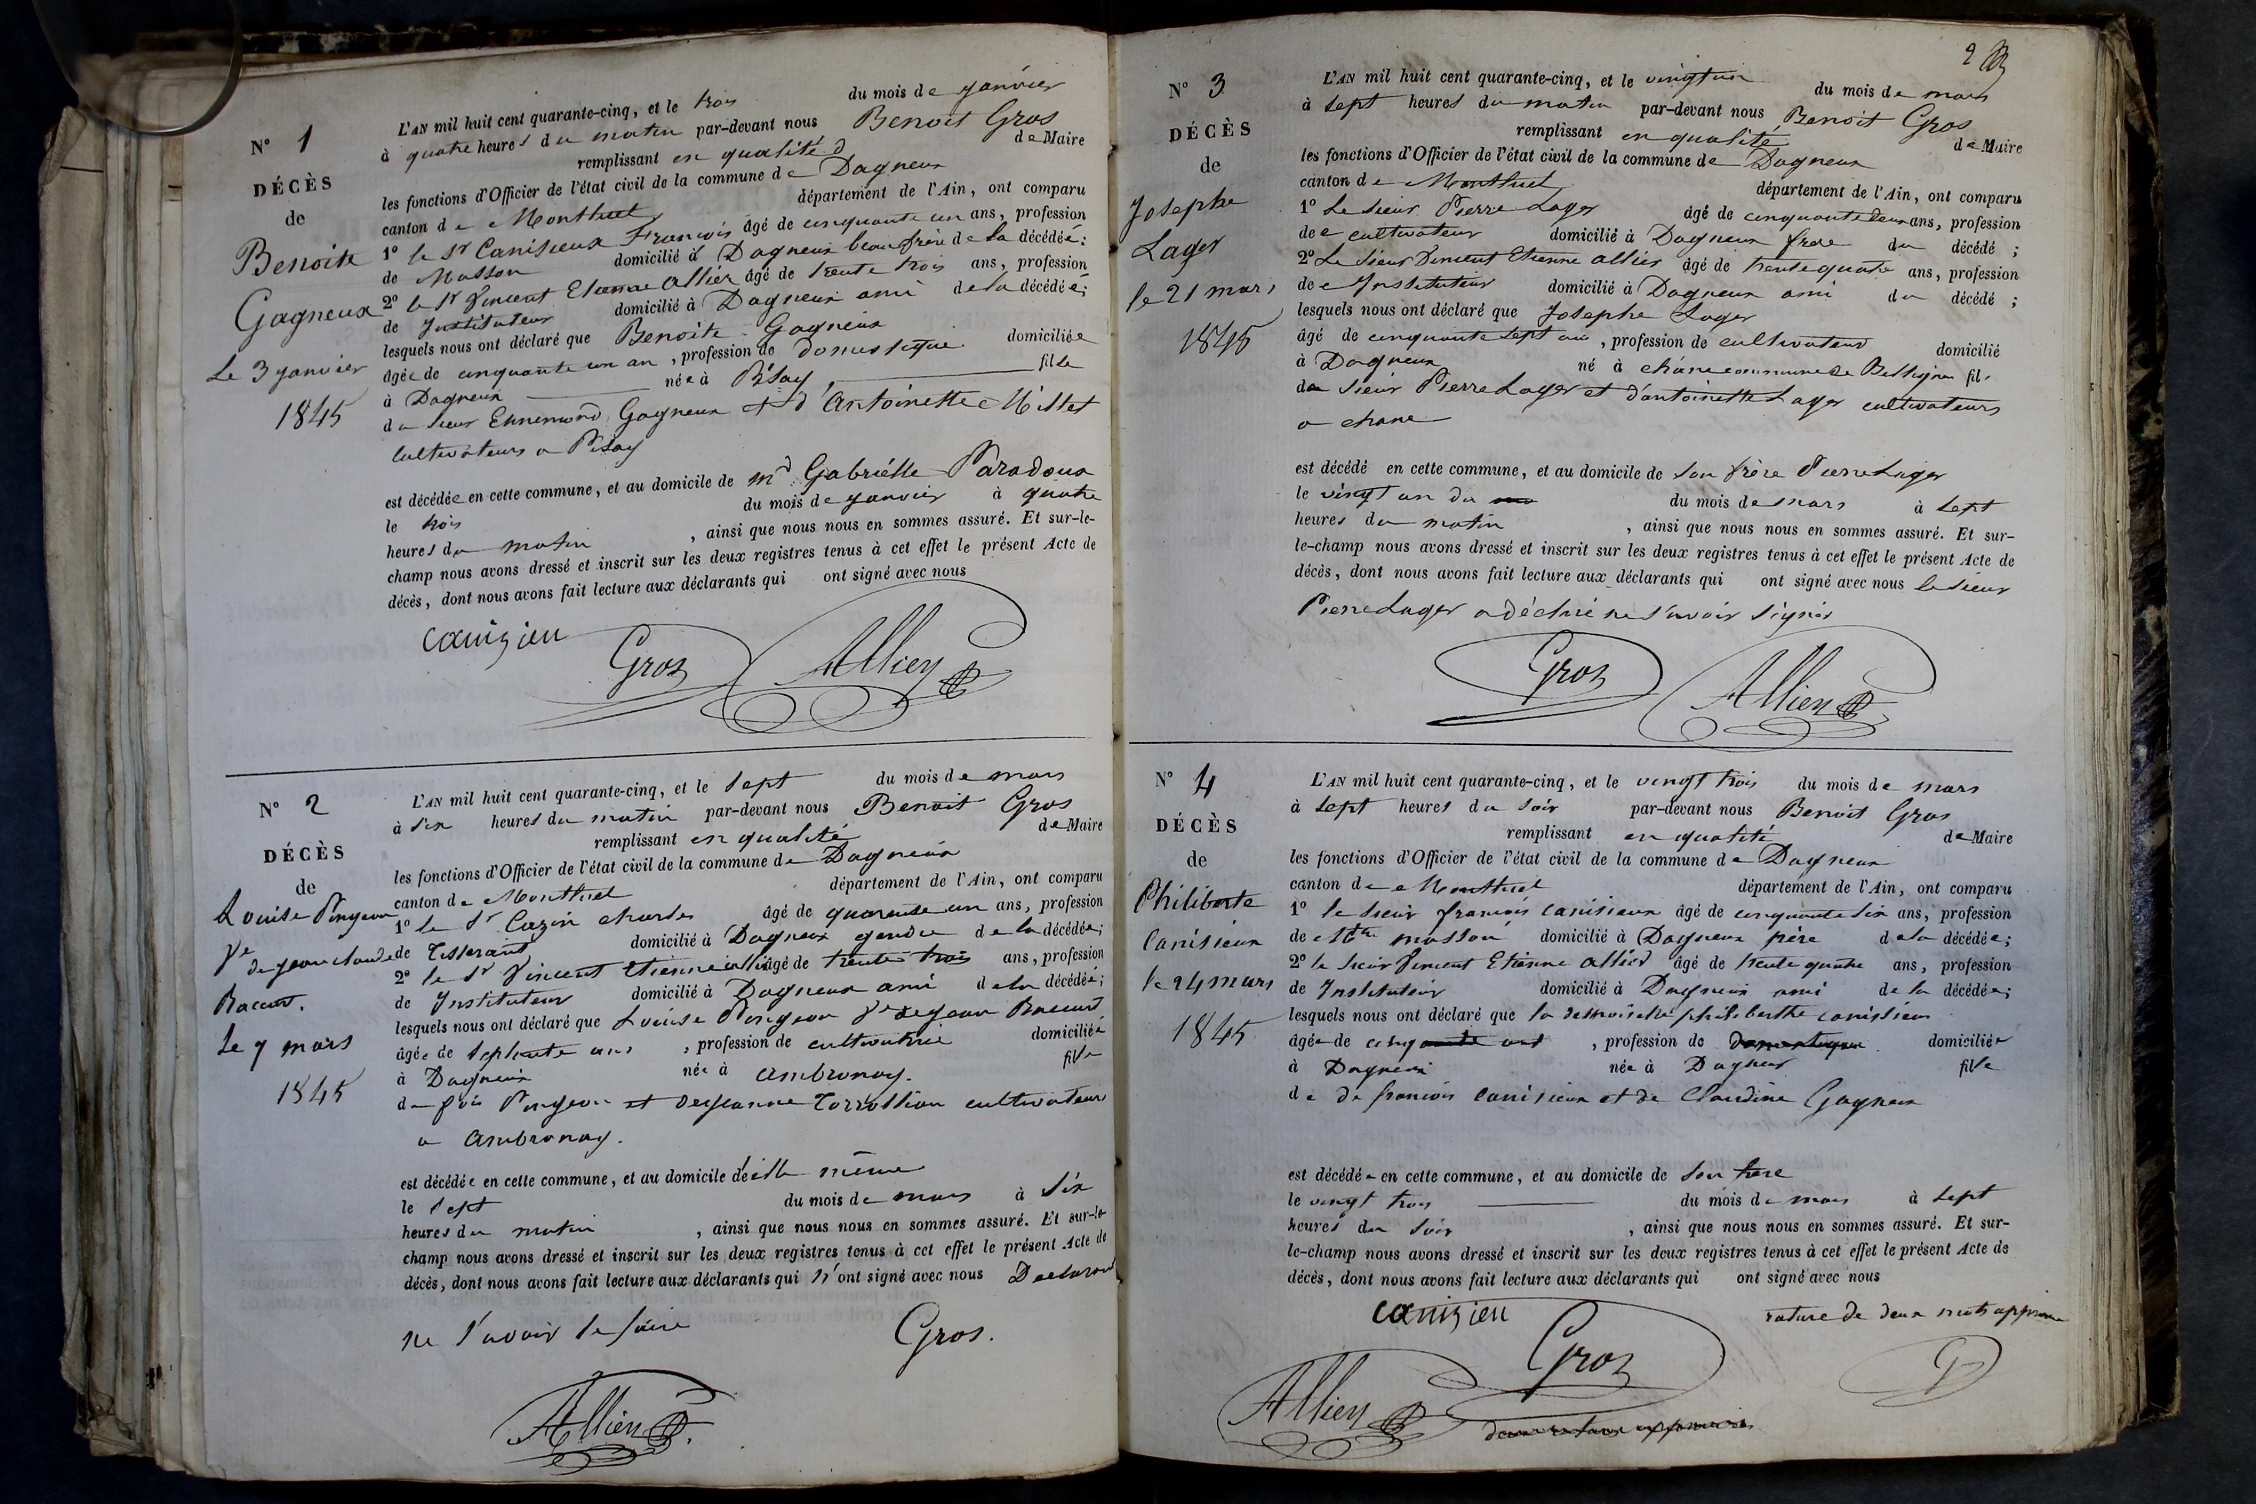 N° 1
DÉCÈS
de
Benoite
Gagneux
Le 3 janvier
1845
L'AN mil huit cent quarante-cinq, et le trois du mois de janvier
à quatre heures du matin par-devant nous Benoit Gros
remplissant en qualité de Maire
les fonctions d'Officier de l'état civil de la commune de Dagneux
canton de Montluel département de l'Ain, ont comparu
1° le Sr Canisieux François âgé de cinquante un ans, profession
de Masson domicilié à Dagneux beau frère de la décédée;
2° le Sr Vincent Etienne Allier âgé de trente trois ans, profession
de Instituteur domicilié à Dagneux ami de la décédée;
lesquels nous ont déclaré que Benoite Gagneux
âgée de cinquante un an, profession de domestique domiciliée
à Dagneux née à Pisay, fille
du sieur Ennemond Gagneux et d'Antoinette Millet
cultivateurs a Pisay
est décédée en cette commune, et au domicile de md Gabrielle Paradoux
le trois du mois de janvier à quatre
heures du matin, ainsi que nous nous en sommes assuré. Et sur-le-
champ nous avons dressé et inscrit sur les deux registres tenus à cet effet le présent Acte de
décès, dont nous avons fait lecture aux déclarants qui ont signé avec nous
canizieu
Gros Allier
N° 2
DÉCÈS
de
Louise Pingeon
Ve
de jean claude
Baccard.
Le 7 mars
1845
L'AN mil huit cent quarante-cinq, et le sept du mois de mars
à six heures du matin par-devant nous Benoit Gros
remplissant en qualité de Maire
les fonctions d'Officier de l'état civil de la commune de Dagneux
canton de Montluel département de l'Ain, ont comparu
1° le Sr Cazin charles âgé de quarante un ans, profession
de Tisserant domicilié à Dagneux gendre de la décédée;
2° le Sr Vincent Etienne allier âgé de trente trois ans, profession
de Instituteur domicilié à Dagneux ami de la décédée;
lesquels nous ont déclaré que Louise Pingeon Ve de jean
âgée de septante ans, profession de cultivatrice domiciliée
à Dagneux née à ambronay. fille
de Pingeon et de jeanne cultivateurs
a ambronay.
est décédée en cette commune, et au domicile d'elle même
le sept du mois de mars à six
heures du matin, ainsi que nous nous en sommes assuré. Et sur-le-
champ nous avons dressé et inscrit sur les deux registres tenus à cet effet le présent Acte de
décès, dont nous avons fait lecture aux déclarants qui n'ont signé avec nous
ne savoir le faire
Gros.
Allier
2
N° 3
DÉCÈS
de
Josephe
Lager
le 21 mars
1845
L'AN mil huit cent quarante-cinq, et le vingt un du mois de mars
à sept heures du matin par-devant nous Benoit Gros
remplissant en qualité de Maire
les fonctions d'Officier de l'état civil de la commune de Dagneux
canton de Montluel département de l'Ain, ont comparu
1° Le sieur Pierre Lager âgé de cinquante deux ans, profession
de cultivateur domicilié à Dagneux frere du décédé;
2° Le sieur Vincent Etienne allier âgé de trente quatre ans, profession
de Instituteur domicilié à Dagneux ami du décédé;
lesquels nous ont déclaré que Josephe Lager
âgé de cinquante sept ans, profession de cultivateur domicilié
à Dagneux né à châne commune de fils
du sieur Pierre Lager et d'antoinette Lager cultivateurs
a chane
est décédé en cette commune, et au domicile de son frère Pierre Lager
le vingt un du du mois de mars à sept
heures du matin, ainsi que nous nous en sommes assuré. Et sur-
le-champ nous avons dressé et inscrit sur les deux registres tenus à cet effet le présent Acte de
décès, dont nous avons fait lecture aux déclarants qui ont signé avec nous le sieur
Pierre Lager a déclaré ne savoir signer
Gros
Allier
N° 4
DÉCÈS
de
Philiberte
Canisieux
le 24 mars
1845
L'AN mil huit cent quarante-cinq, et le vingt trois du mois de mars
à sept heures du soir par-devant nous Benoit Gros
remplissant en qualité de Maire
les fonctions d'Officier de l'état civil de la commune de Dagneux
canton de Montluel département de l'Ain, ont comparu
1° le sieur françois canisieux âgé de cinquante six ans, profession
de Mtre masson domicilié à Dagneux père de la décédée;
2° le sieur Vincent Etienne allier âgé de trente quatre ans, profession
de Instituteur domicilié à Dagneux ami de la décédée;
lesquels nous ont déclaré que la demoiselle philiberthe canisieux
âgée de cinq ans, profession de domestique domiciliée
à Dagneux née à Dagneux fille
de de françois canisieux et de Claudine Gagneux
est décédée en cette commune, et au domicile de son
le vingt trois du mois de mars à sept
heures du soir, ainsi que nous nous en sommes assuré. Et sur-
le-champ nous avons dressé et inscrit sur les deux registres tenus à cet effet le présent Acte de
décès, dont nous avons fait lecture aux déclarants qui ont signé avec nous
canizieu
rature de deux mots
Gros
Allier